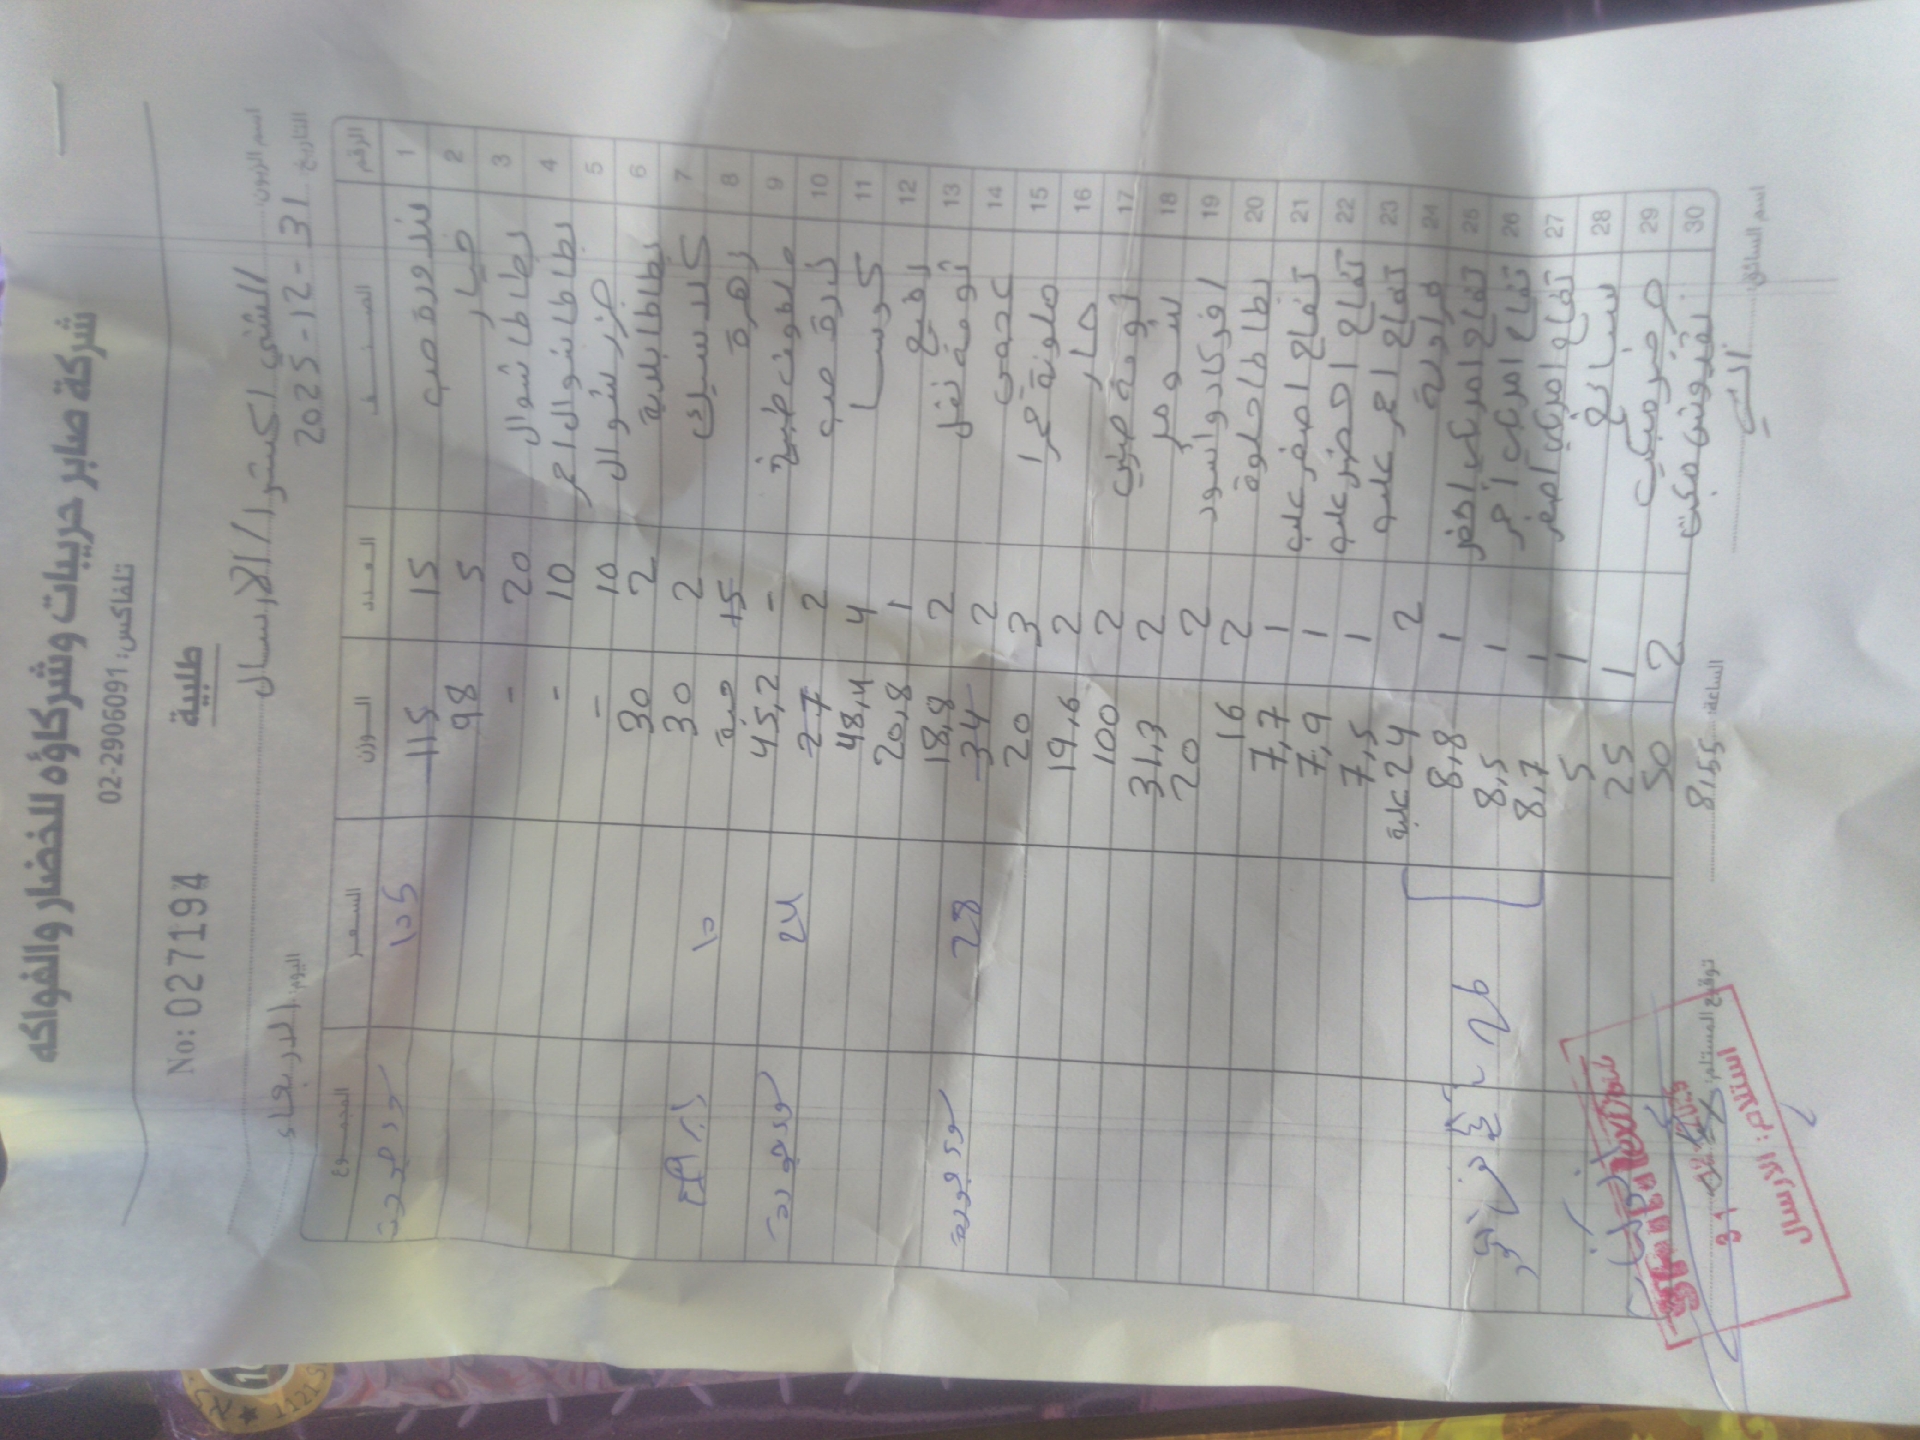 شركة صابر حريبات وشركاؤه للخضار والفواكه
تلفاكس: 02-2906091
طلبية
No: 027194
اسم الزبون: الشني اكسترا / الارسال
التاريخ 2025-12-31 اليوم: الاربعاء
الرقم الصنف العدد الوزن السعر المجموع
1 بندورة صب 15 115 105
2 خيار 5 98
3 بطاطا شوال 20 -
4 بطاطا شوال احمر 10 -
5 جزر شوال 10 -
6 بطاطا بلدية 2 30
7 2 30 10
8 زهرة 15 حبة
9 - 45,2 24
10 ذرة صب 2 27
11 كوسا 4 48,4
12 1 20,8
13 ثومة نفل 2 18,8 28
14 2 34
15 ملونة حمرا 3 20
16 حار 2 19,6
17 2 100
18 شومر 2 31,3
19 افوكادو اسود 2 20
20 بطاطا حلوة 2 16
21 تفاح اصفر علب 1 7,7
22 تفاح اخضر علب 1 7,9
23 تفاح احمر علب 1 7,5
24 فراولة 2 24 علبة
25 تفاح امركي اخضر 1 8,8
26 تفاح امركي احمر 1 8,5
27 تفاح امركي اصفر 1 8,7
28 سبانخ 1 5
29 1 25
30 2 50
اسم السائق: الساعة: 8,55 توقيع المستلم:
استلام: الارسال